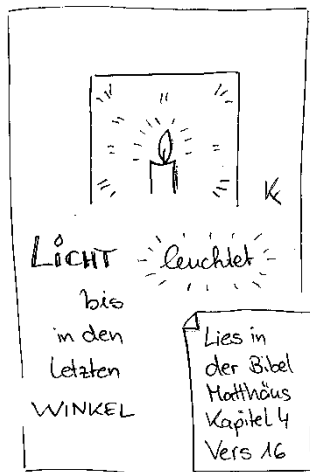 K
LICHT leuchtet
bis
in den
letzten
WINKEL
Lies in
der Bibel
Matthäus
Kapitel 4
Vers 16